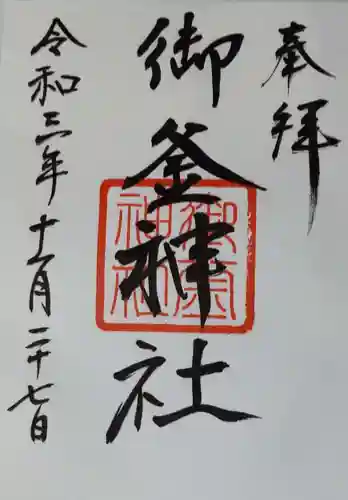 奉拝
御釜神社
御釜神社
令和三年十一月二十七日